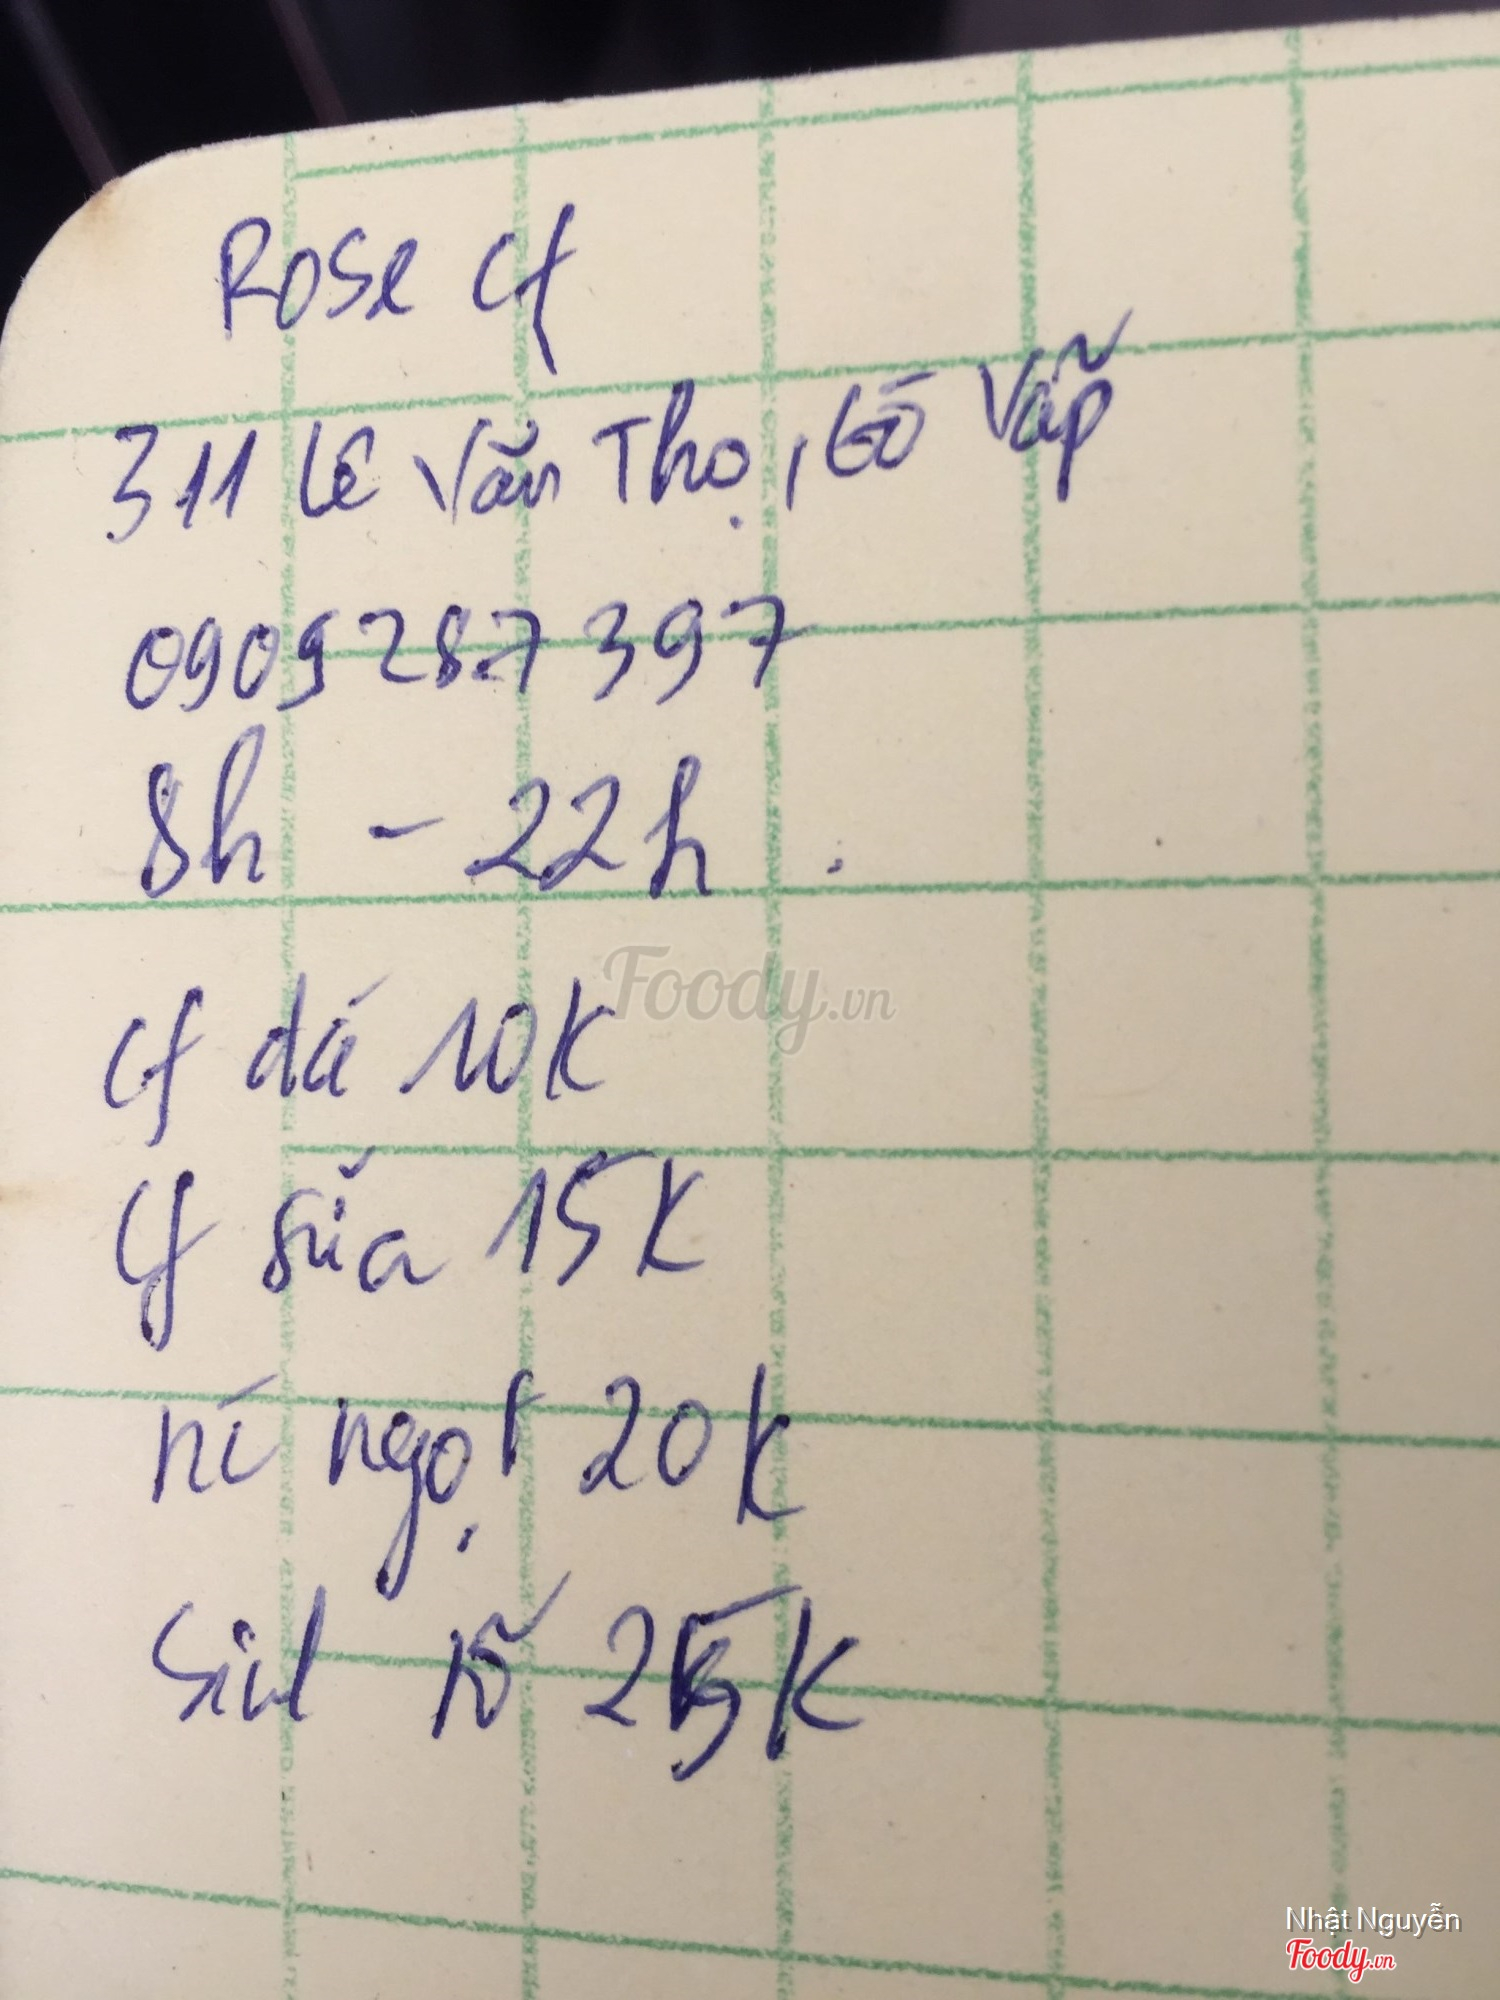 Rose cf
311 Lê Văn Thọ, Gò Vấp
0909 287 397
8h - 22h.
cf đá 10K
cf sữa 15K
nc ngọt 20K
Sinh tố 25K
Foody.vn
Nhật Nguyễn
Foody.vn